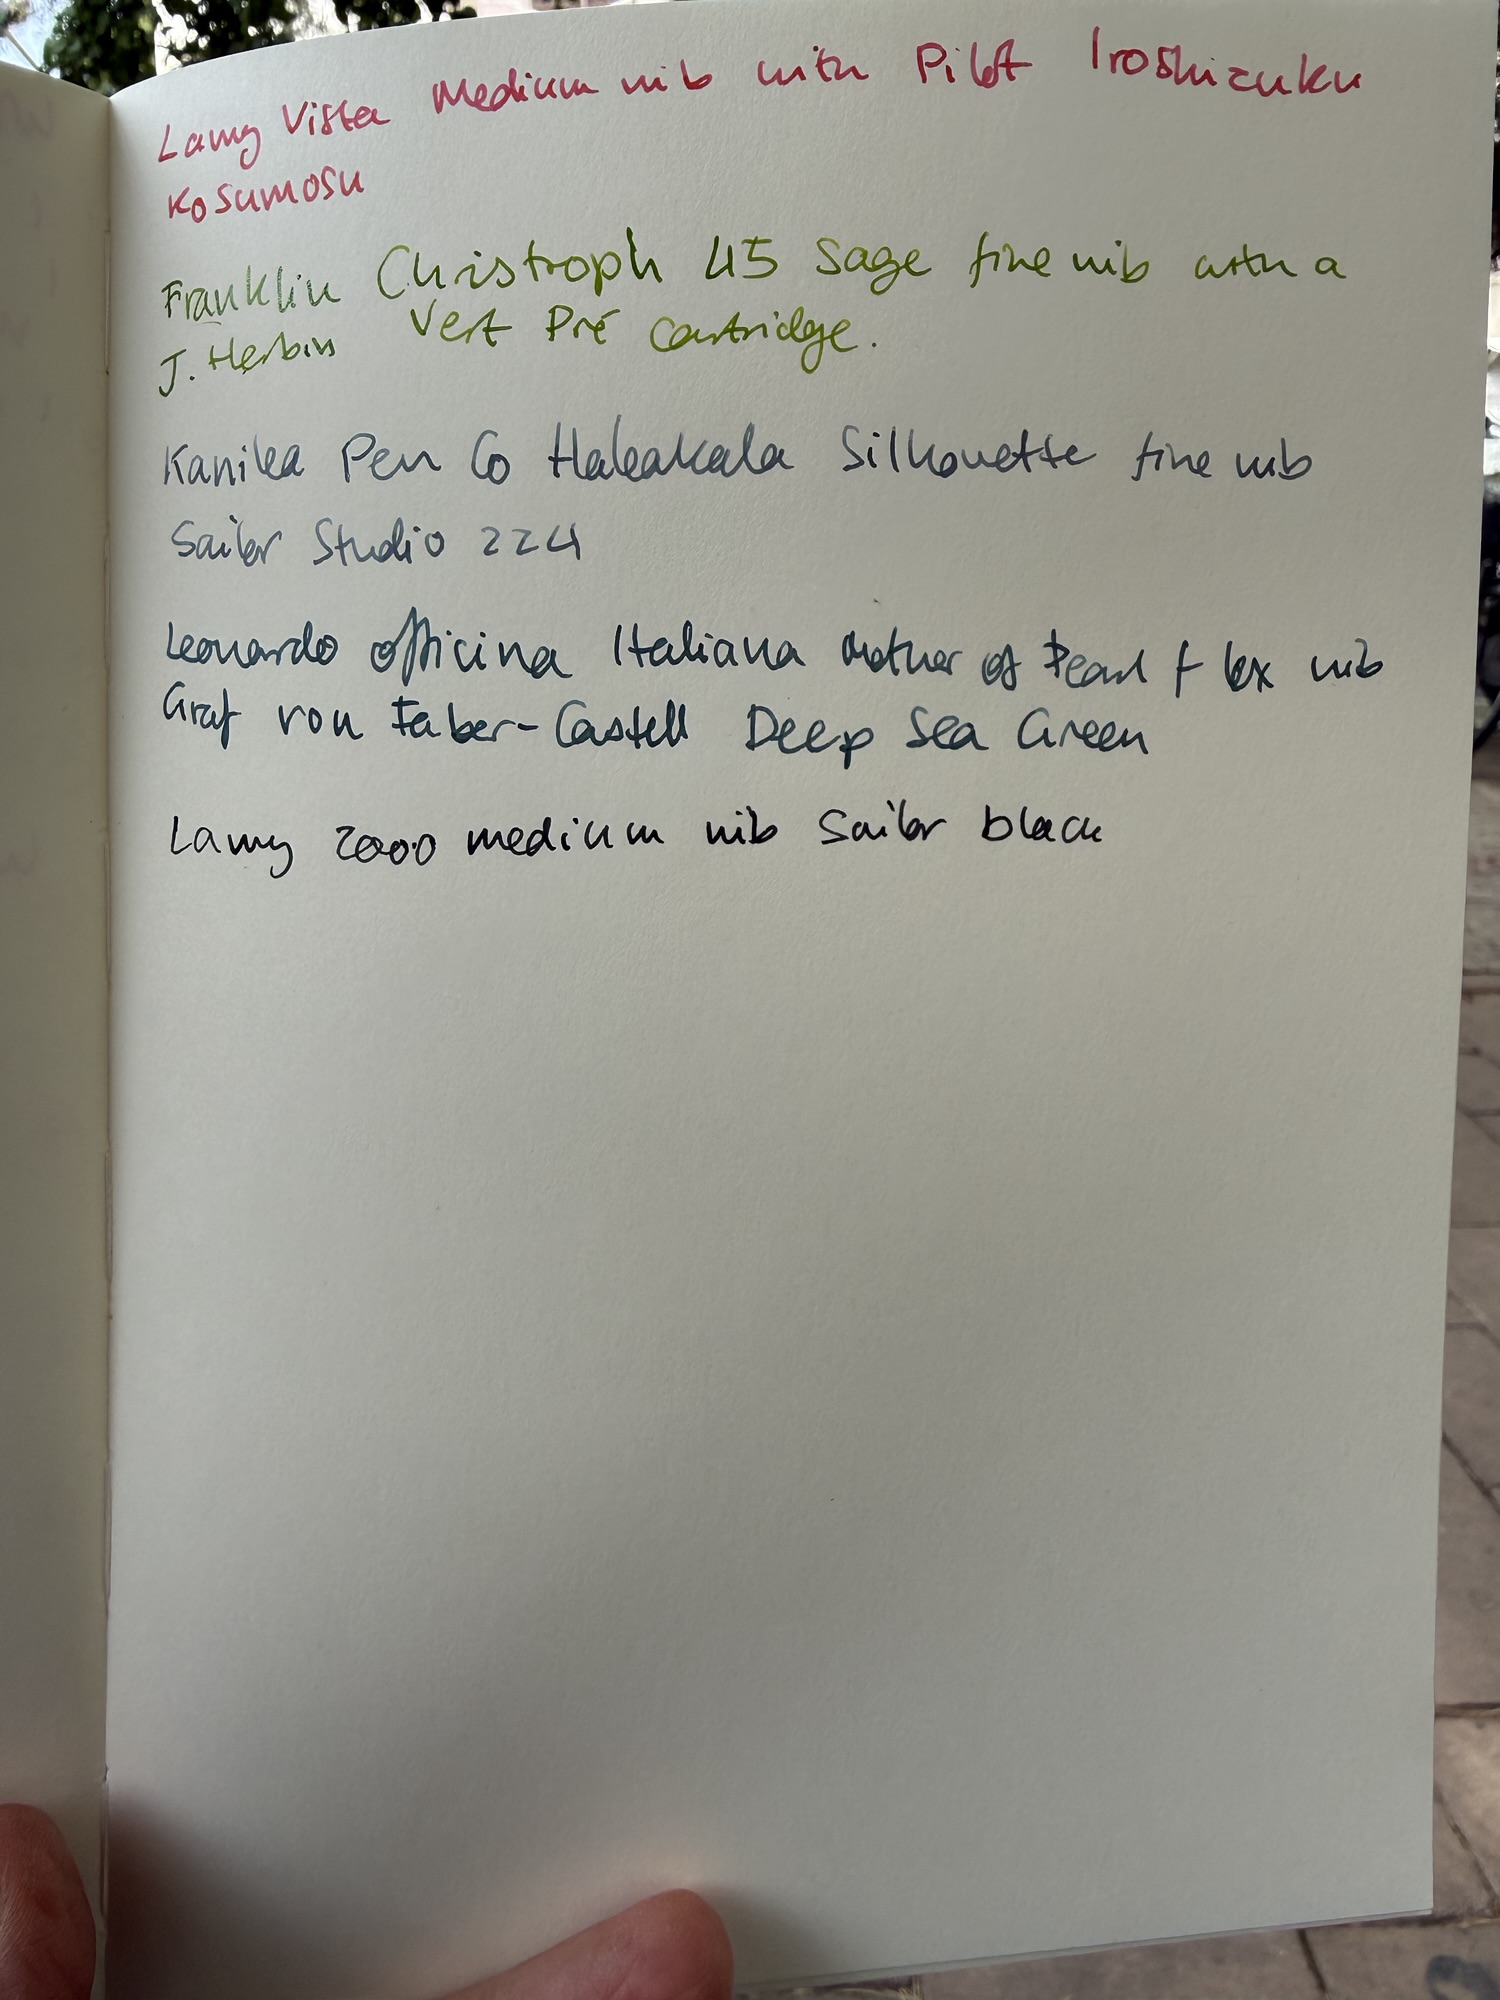 Lamy Vista Medium nib with Pilot Iroshizuku
Kosumosu
Franklin Christroph 45 Sage fine nib with a
J. Herbin Vert Pré Cartridge.
Kanilea Pen Co Haleakala Silhouette fine nib
Sailor Studio 224
Leonardo Officina Italiana Mother of Pearl flex nib
Graf von Faber-Castell Deep Sea Green
Lamy 2000 medium nib Sailor black